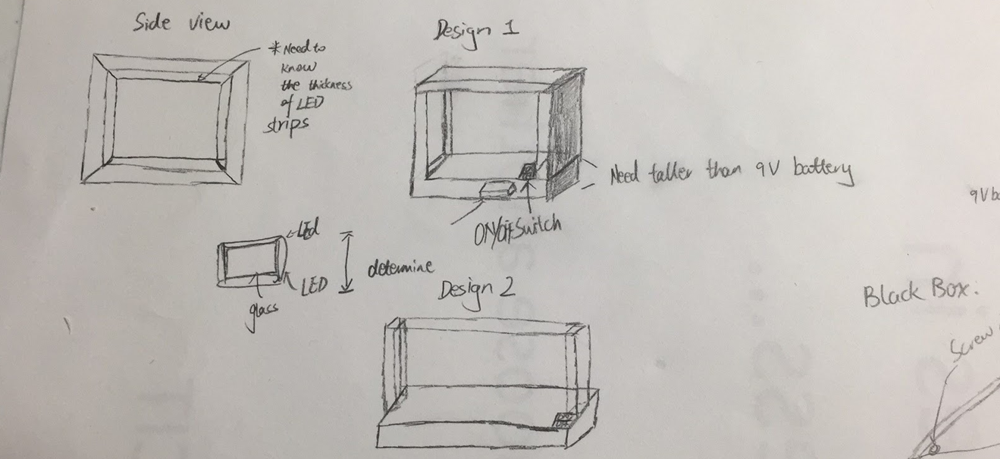 Side view
* Need to
know
the thickness
of LED
strips
Design 1
Need taller than 9V battery
ON/OFF Switch
LED
LED
glass
determine
Design 2
9V ba
Black Box.
Screw